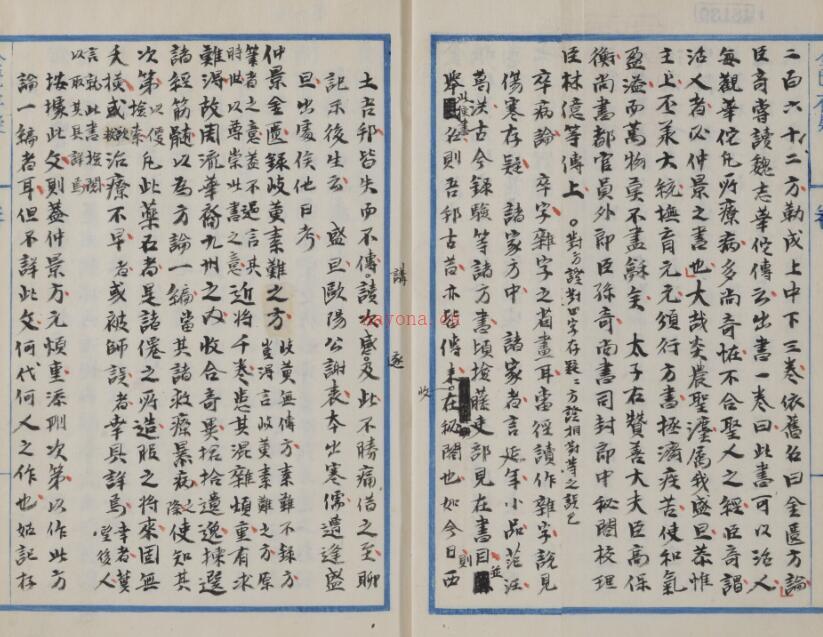 二百六十二方勒成上中下三卷依舊名曰金匱方論
臣奇嘗讀魏志華佗傳云出書一卷曰此書可以活人
每觀華佗凡所療病多尚奇怪不合聖人之經臣奇謂
活人者必仲景之書也大哉炎農聖灋属我盛旦恭惟
主上丕承大統撫育元元頒行方書拯濟疾苦使和氣
盈溢而萬物莫不盡龢矣 太子右贊善大夫臣高保
衡尚書都官員外郎臣孫奇尚書司封郎中秘閣校理
臣林億等傳上 對方證對四字存疑方證相對等之誤已
卒病論 卒字雜字之省畫耳當徑讀作雜字說見
傷寒存疑 諸家方中 諸家者言延年小品范汪
葛洪古今録驗等諸方書頃撿藤吏部見在書目
此後書 並
舉 名則吾邦古昔亦皆傳来在秘閣也如今日西
則
土吾邦皆失而不傳讀次感及此不勝痛借之至聊
記示後生云 盛旦歐陽公謝表本出寒儒遭逢盛
旦出處俟他日考
仲景金匱録岐黄素難之方 此黄無傳方素難不録方
豈得言岐黄素難之方原
筆者之意蓋不過言其
時此以尊崇此書之意
近將千卷患其混雜煩重有求
難得故周流華裔九州之内收合奇異捃拾遺逸揀選
諸經筋髓以為方論一編當其諸救療暴病 使知其
次第 以便
撿索
凡此藥石者是諸僊之所造服之將來固無
夭横或 治療不早者或被師誤者幸具詳焉 幸者冀
望後人
以取其具詳焉
言就此書撿閲
按據此文則蓋仲景方元煩重添刪次第以作此方
論一編者耳但不詳此文何代何人之作也姑記存
bayona.cn